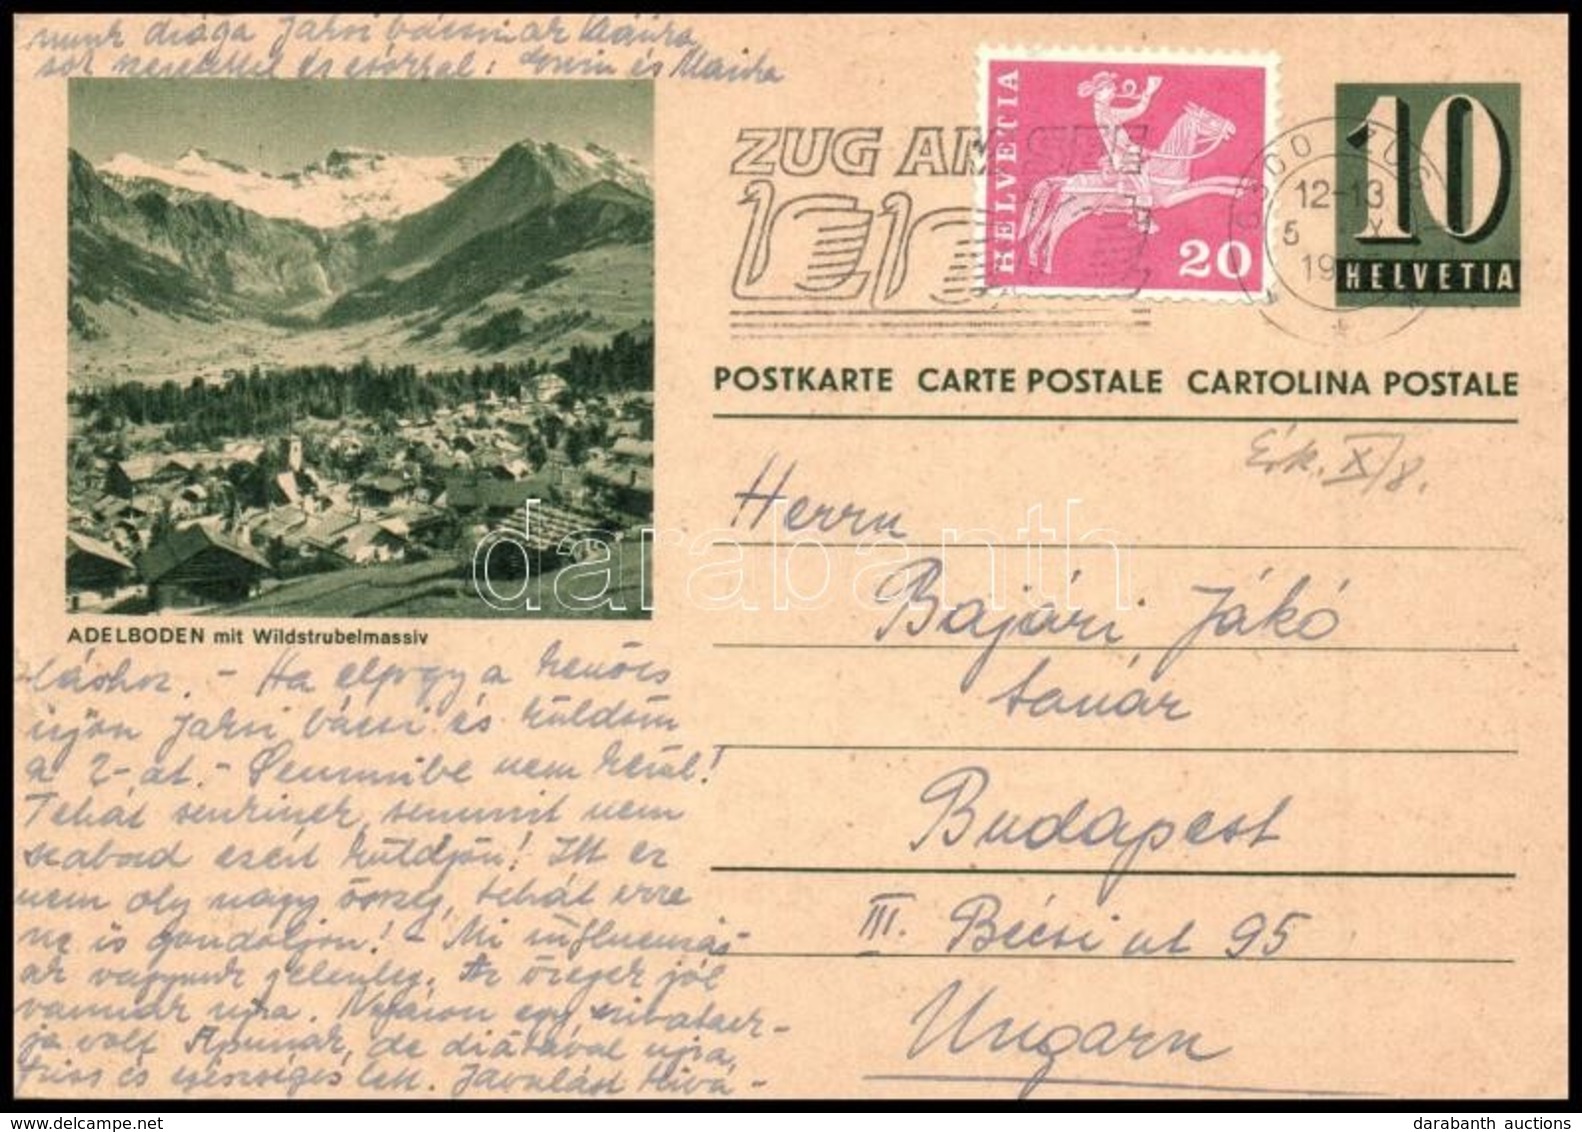 láshoz. - Ha elfogy a kenőcs
írjon Jaksi bácsi és küldöm
a 2-at. - Semmibe nem kerül!
Tehát senkinek semmit nem
szabad ezért küldjön! Itt ez
nem oly nagy összeg, tehát erre
ne is gondoljon! - Mi influenzás-
ak vagyunk jelenleg. Az öregek jól
vannak újra. Nyáron egy
ja volt Apunak, de diétával újra
friss és egészséges lett. Javulást kivá-
nunk drága bácsinak
sok szeretettel és csókkal: Erwin és
ADELBODEN mit Wildstrubelmassiv
ZUG AM SEE
HELVETIA
20
6300 ZUG
12-13
5 X
19
10
HELVETIA
POSTKARTE CARTE POSTALE CARTOLINA POSTALE
Érk. X/8.
Herrn
Bajári Jákó
tanár
Budapest
III. Bécsi ut 95
Ungarn
darabanth
www.delcampe.net
darabanth auctions